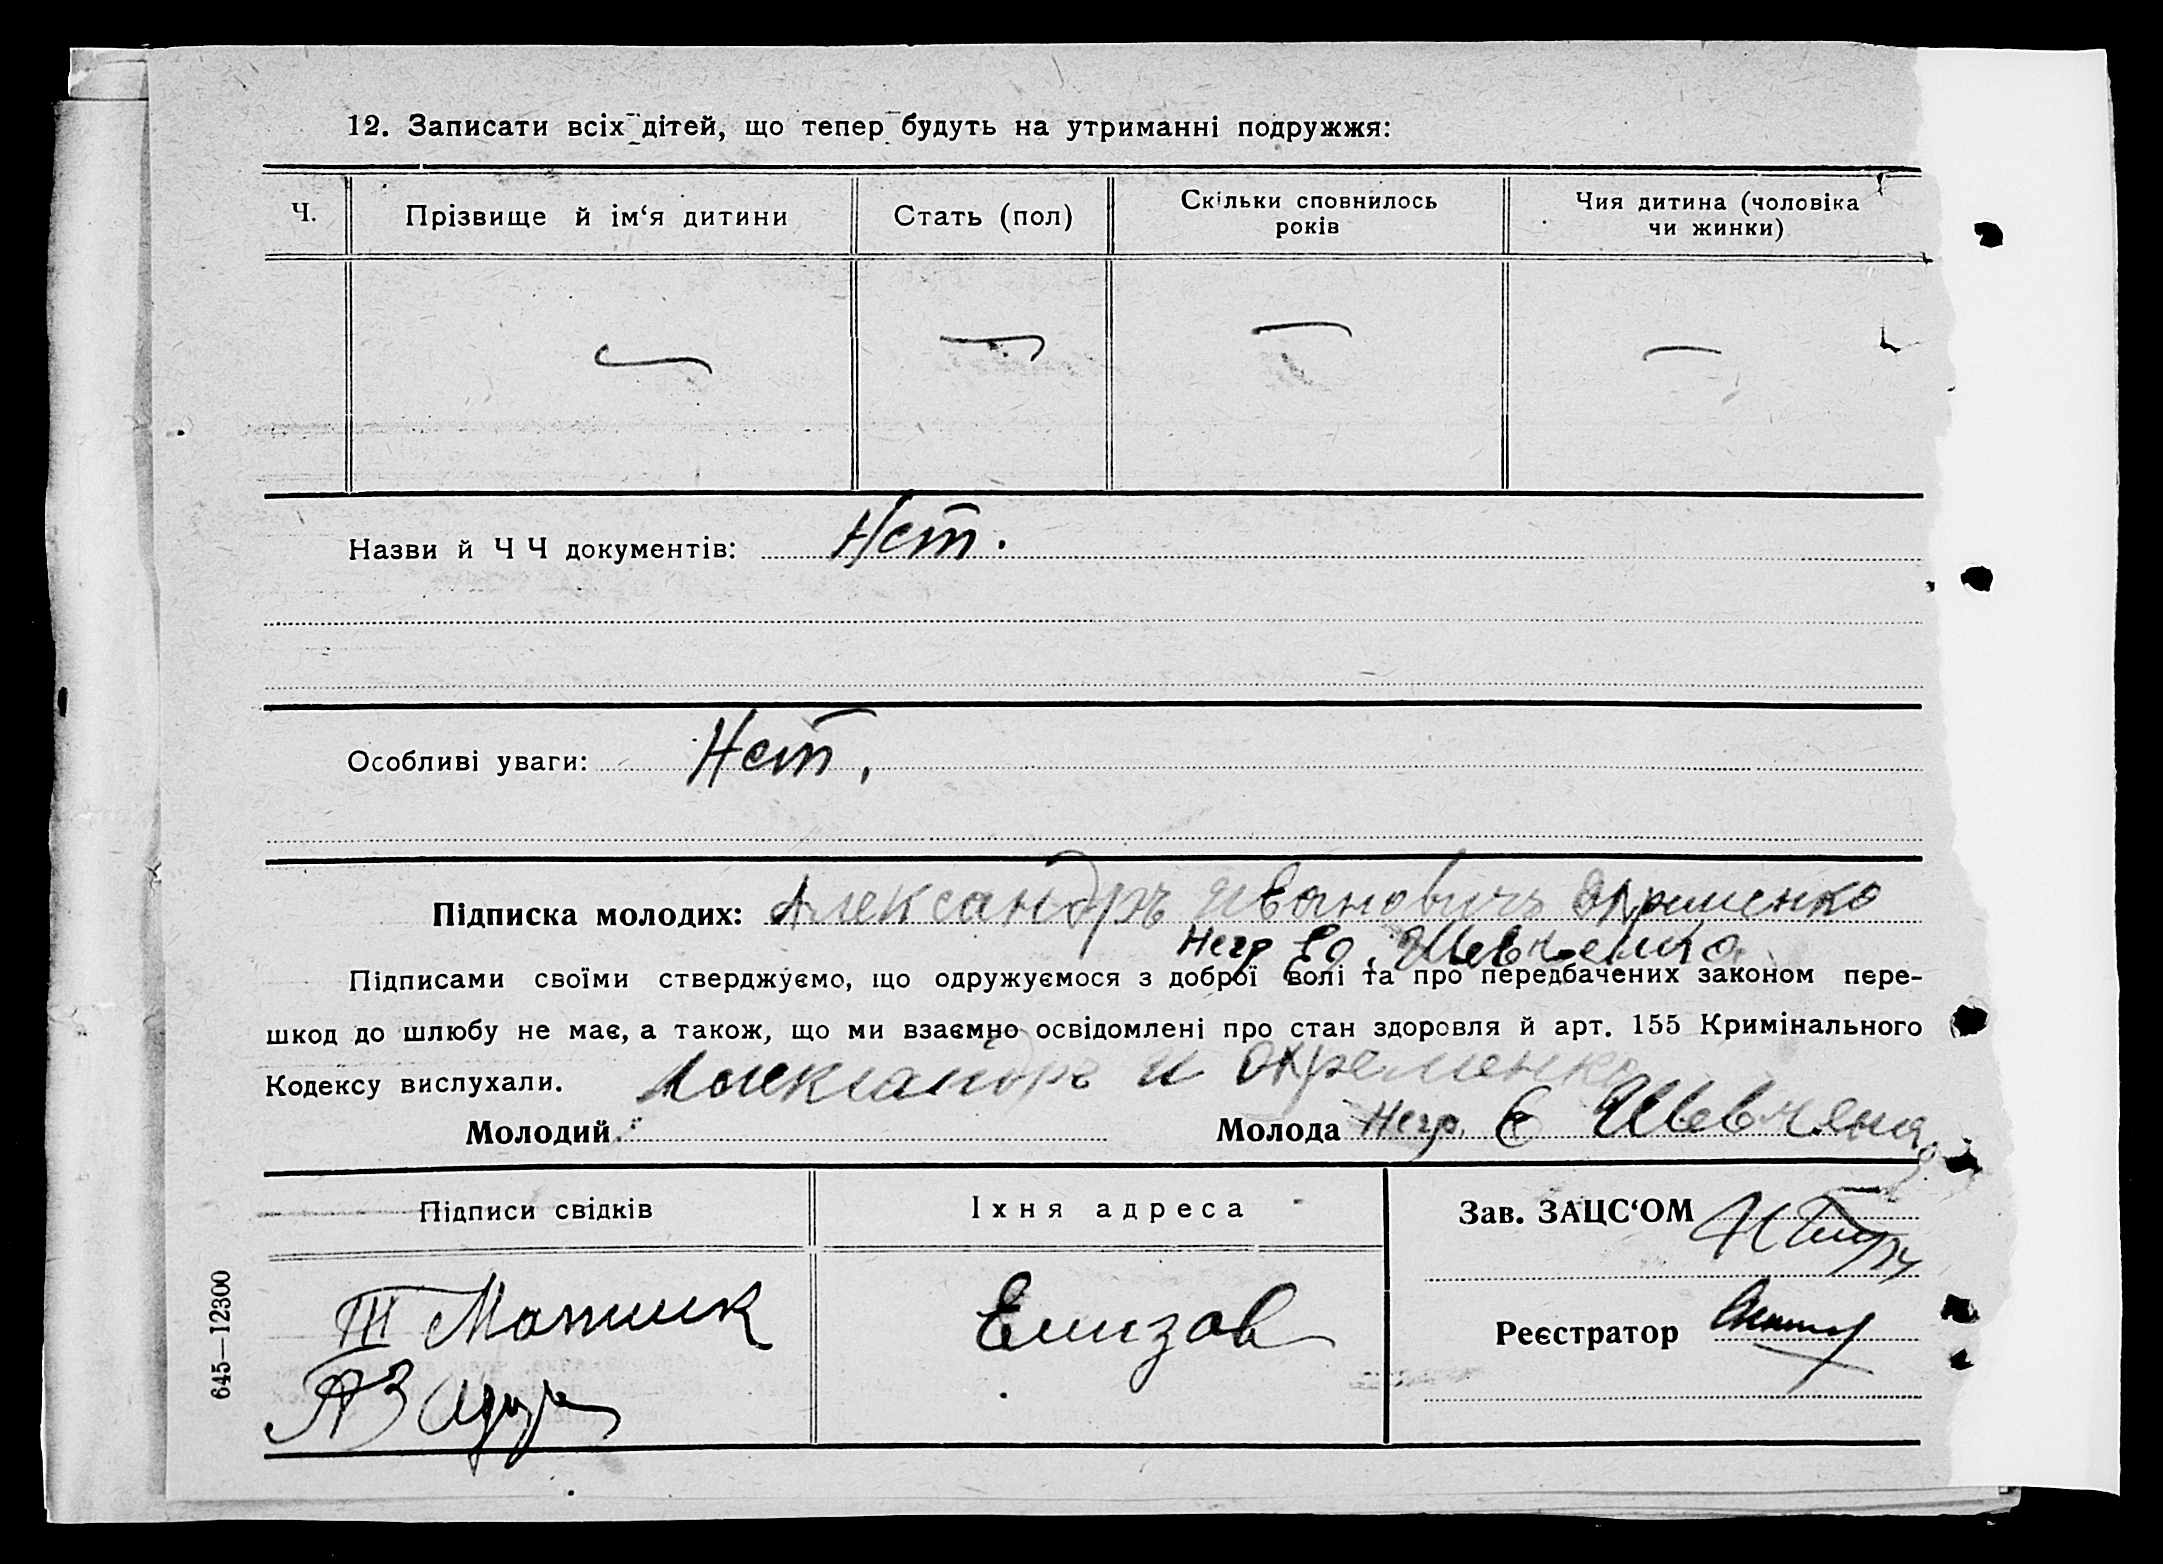 12. Записати всіх дітей, що тепер будуть на утриманні подружжя:
Ч.
Прізвище й ім‘я дитини
Стать (пол)
Скільки сповнилось
років
Чия дитина (чоловіка
чи жинки)
Назви й Ч Ч документів: Нет.
Особливі уваги: Нет,
Підписка молодих: Александръ Ивановичъ Охрименко
Негр Шевченка
Підписами своїми стверджуємо, що одружуємося з доброї волі та про передбачених законом пере-
шкод до шлюбу не має, а також, що ми взаємно освідомлені про стан здоровля й арт. 155 Кримінального
Кодексу вислухали.
Александръ И Охременко
Молодий
Молода Негр. Є Шевченка
Підписи свідків
Іхня адреса
Зав. ЗАЦС‘ОМ
Реєстратор
645—12300